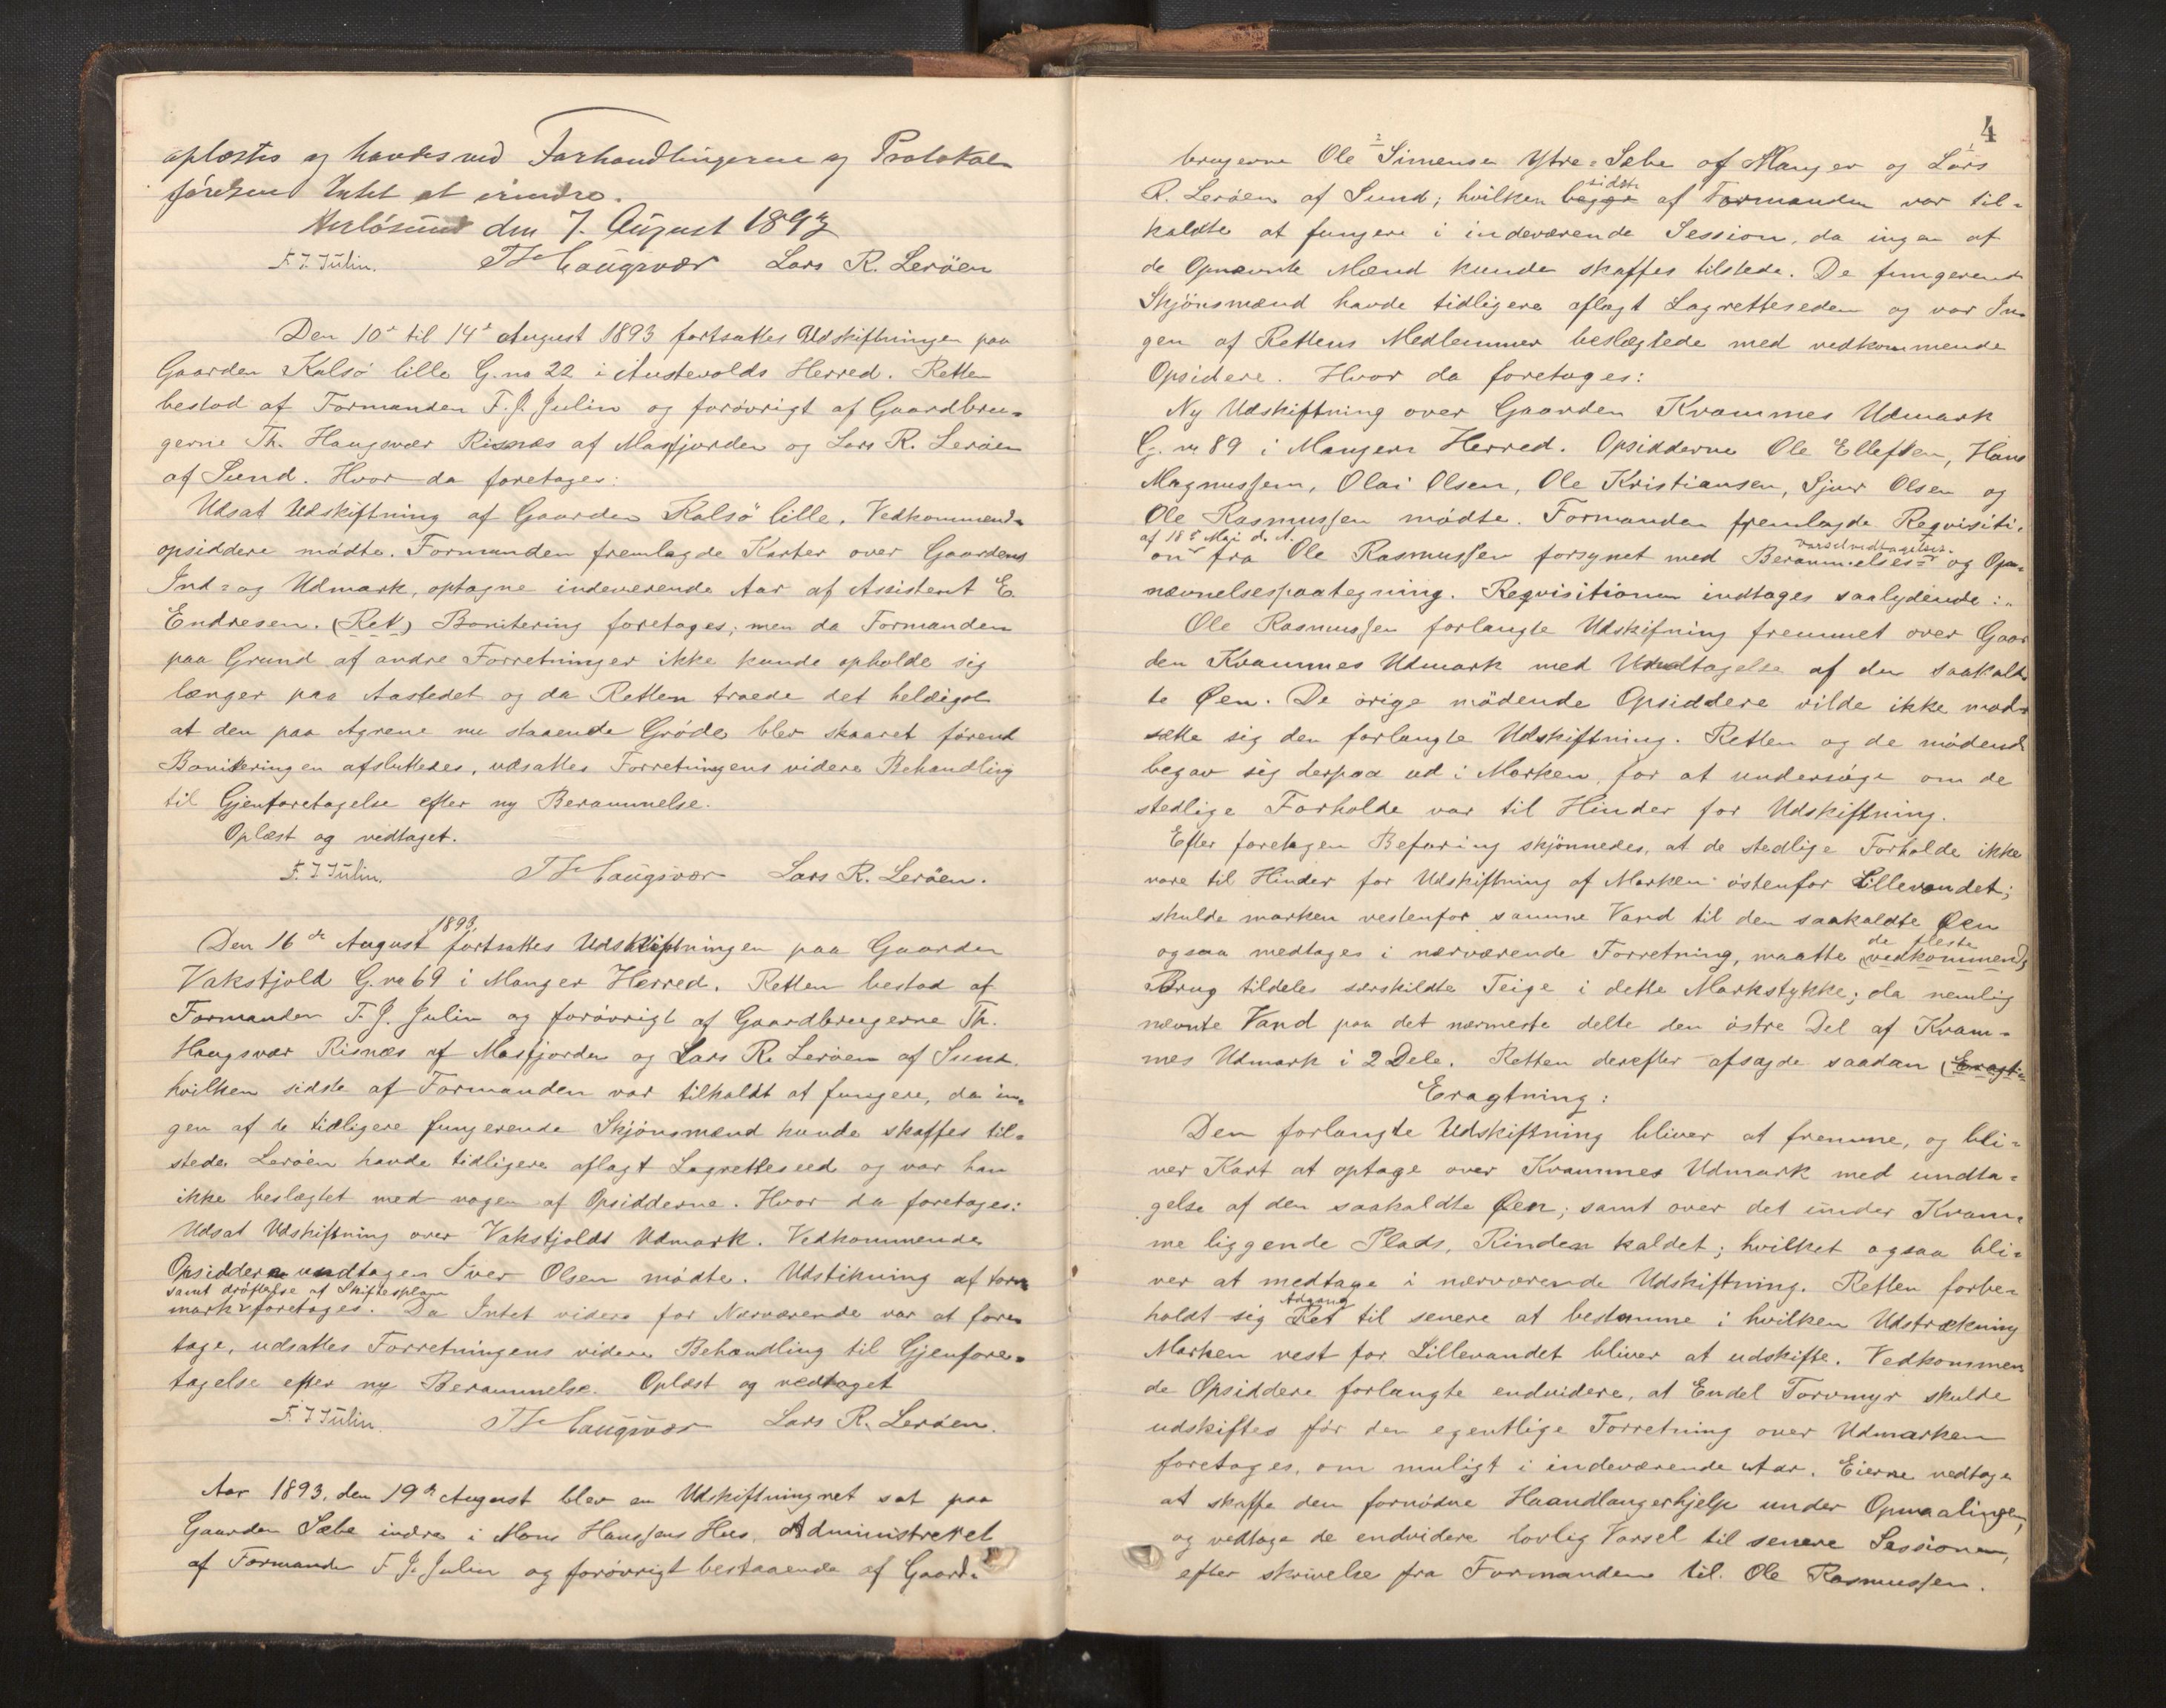 oplæstes og havdes ved Forhandlingerne og Protokol-
førelsen Intet at erindre.
den 7. August 1893
F. J. Julin. Th Haugsvær Lars R. Lerøen
Den 10de til 14de August 1893 fortsattes Udskiftningen paa
Gaarden Kalsø lille G. no 22 i Austevolds Herred. Retten
bestod af Formanden F. J. Julin og forøvrigt af Gaardbru-
gerne Th. Haugsvær Risnæs af Masfjorden og Lars R. Lerøen
af Sund. Hvor da foretages:
Udsat Udskiftning af Gaarden Kalsø lille. Vedkommende
opsiddere mødte. Formanden fremlagde Karter over Gaardens
Ind- og Udmark, optagne indeværende Aar af Assistent E.
Endresen. (Ret) Bonitering foretages; men da Formanden
paa Grund af andre Forretninger ikke kunde opholde sig
længer paa Aastedet og da Retten troede det heldigst
at den paa Agrene nu staaende Grøde blev skaaret førend
Boniteringen afsluttedes, udsattes Forretningens videre Behandling
til Gjenforetagelse efter ny Berammelse.
Oplæst og vedtaget.
F. J. Julin. Th Haugsvær Lars R. Lerøen.
1893,
Den 16de August fortsattes Udskiftningen paa Gaarden
Vakstjold G. no 69 i Manger Herred. Retten bestod af
Formanden F. J. Julin og forøvrigt af Gaardbrugerne Th.
Haugsvær Risnæs af Masfjorden og Lars R. Lerøen af Sund.
hvilken sidste af Formanden var tilkaldt at fungere, da in-
gen af de tidligere fungerende Skjönsmænd kunde skaffes til-
stede. Lerøen havde tidligere aflagt Lagretteseed og var han
ikke beslægtet med nogen af Opsidderne. Hvor da foretages:
Udsat Udskiftning over Vakstjolds Udmark. Vedkommende
Opsiddere undtagen Iver Olsen mødte. Udstikning af torv-
samt drøftelse af Skiftesplan
mark foretages. Da Intet videre for Nærværende var at fore-
tage, udsattes Forretningens videre Behandling til Gjenfore-
tagelse efter ny Berammelse. Oplæst og vedtaget
F. J. Julin. Th Haugsvær Lars R. Lerøen.
Aar 1893, den 19de August blev en Udskiftningret sat paa
Gaarden Sæbe indre i Mons Hanssens Hus. Administreret
af Formanden F. J. Julin og forøvrigt bestaaende af Gaard-
4
brugerne Ole Simensen Ytre-Sæbe af Manger og Lars
sidste
R. Lerøen af Sund; hvilken begge af Formanden var til-
kaldte at fungere i indeværende Session, da ingen af
de Opnævnte Mænd kunde skaffes tilstede. De fungerende
Skjønsmænd havde tidligere aflagt Lagretteseden og var In-
gen af Rettens Medlemmer beslægtede med vedkommende
Opsidere. Hvor da foretages:
Ny Udskiftning over Gaarden Kvammes Udmark
G. no 89 i Mangers Herred. Opsidderne Ole Ellefsen, Hans
Magnussen, Olai Olsen, Ole Kristiansen, Sjur Olsen og
Ole Rasmussen mødte. Formanden fremlagde Reqvisiti-
af 18de Maj d. A. varselvedtagelses-
on fra Ole Rasmussen forsynet med Berammelses- og Op-
nævnelsespaategning. Reqvisitionen indtages saalydende:„
Ole Rasmussen forlangte Udskifning fremmet over Gaar
den Kvammes Udmark med Undtagelse af den saakald-
te Øen. De ørige mødende Opsiddere vilde ikke mod-
sætte sig den forlangte Udskiftning. Retten og de mødende
begav sig derpaa ud i Marken, for at undersøge om de
stedlige Forholde var til Hinder for Udskiftning.
Efter foretagen Befaring skjønnedes, at de stedlige Forholde ikke
vare til Hinder for Udskiftning af Marken østenfor Lillevandet;
skulde marken vestenfor samme Vand til den saakaldte Øen
de fleste
ogsaa medtages i nærværende Forretning, maatte (vedkommende)
Brug tildeles særskildte Teige i dette Markstykke; da nemlig
nævnte Vand paa det nærmeste delte den østre Del af Kvam-
mes Udmark i 2 Dele. Retten derefter afsagde saadan (Eragt-
Eragtning:
Den forlangte Udskiftning bliver at fremme, og bli-
ver Kart at optage over Kvammes Udmark med undta-
gelse af den saakaldte Øen; samt over det under Kvam-
me liggende Plads, Rinden kaldet; hvilket ogsaa bli-
ver at medtage i nærværende Udskiftning. Retten forbe-
Adgang
holdt sig Ret til senere at bestemme i hvilken Udstrækning
Marken vest for Lillevandet bliver at udskifte. Vedkommen
de Opsiddere forlangte endvidere, at Endel Torvmyr skulde
udskiftes før den egentlige Forretning over Udmarken
foretages, om muligt i indeværende Aar. Eierne vedtage
at skaffe den fornødne Haandlangerhjelp under Opmaalingen,
og vedtage de endvidere lovlig Varsel til senere Sessioner,
efter skrivelse fra Formanden til Ole Rasmussen.